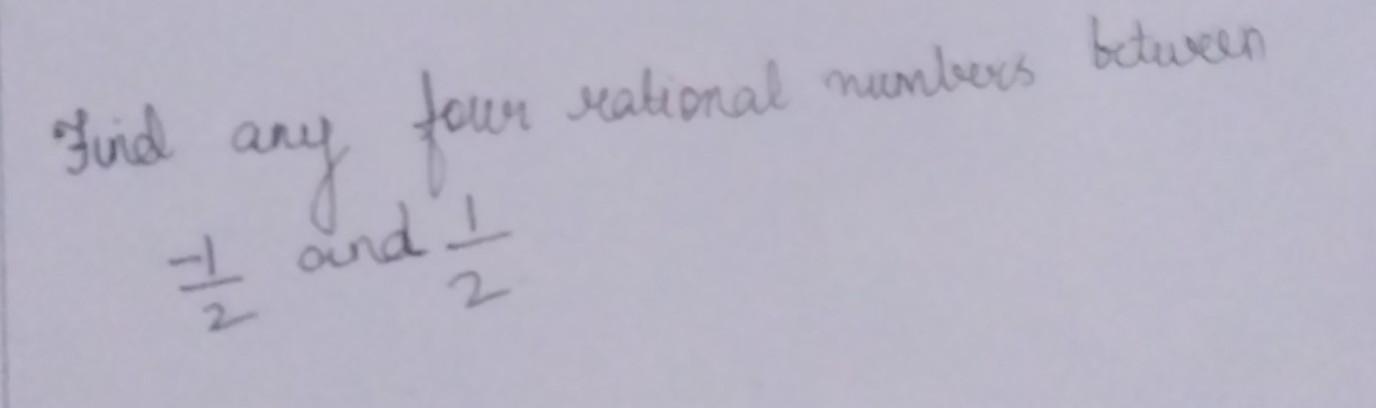 Find any four rational numbers between
-1/2 and 1/2